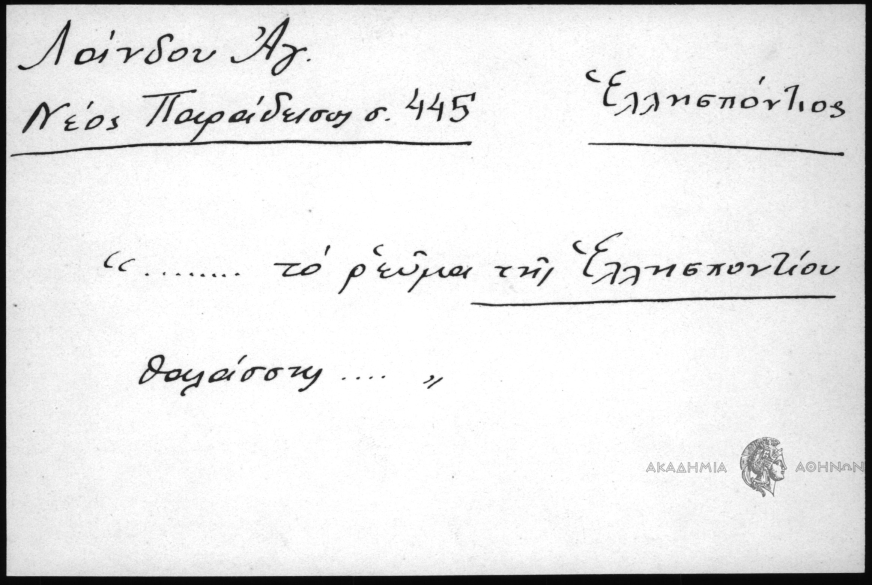 Λαίνδου Ἁγ.
Νέος Παράδεισος σ. 445
Ἑλλησπόντιος
“........ τό ρεῦμα τῆς Ἑλλησποντίου
θαλάσσης .... „
ΑΚΑΔΗΜΙΑ ΑΘΗΝΩΝ